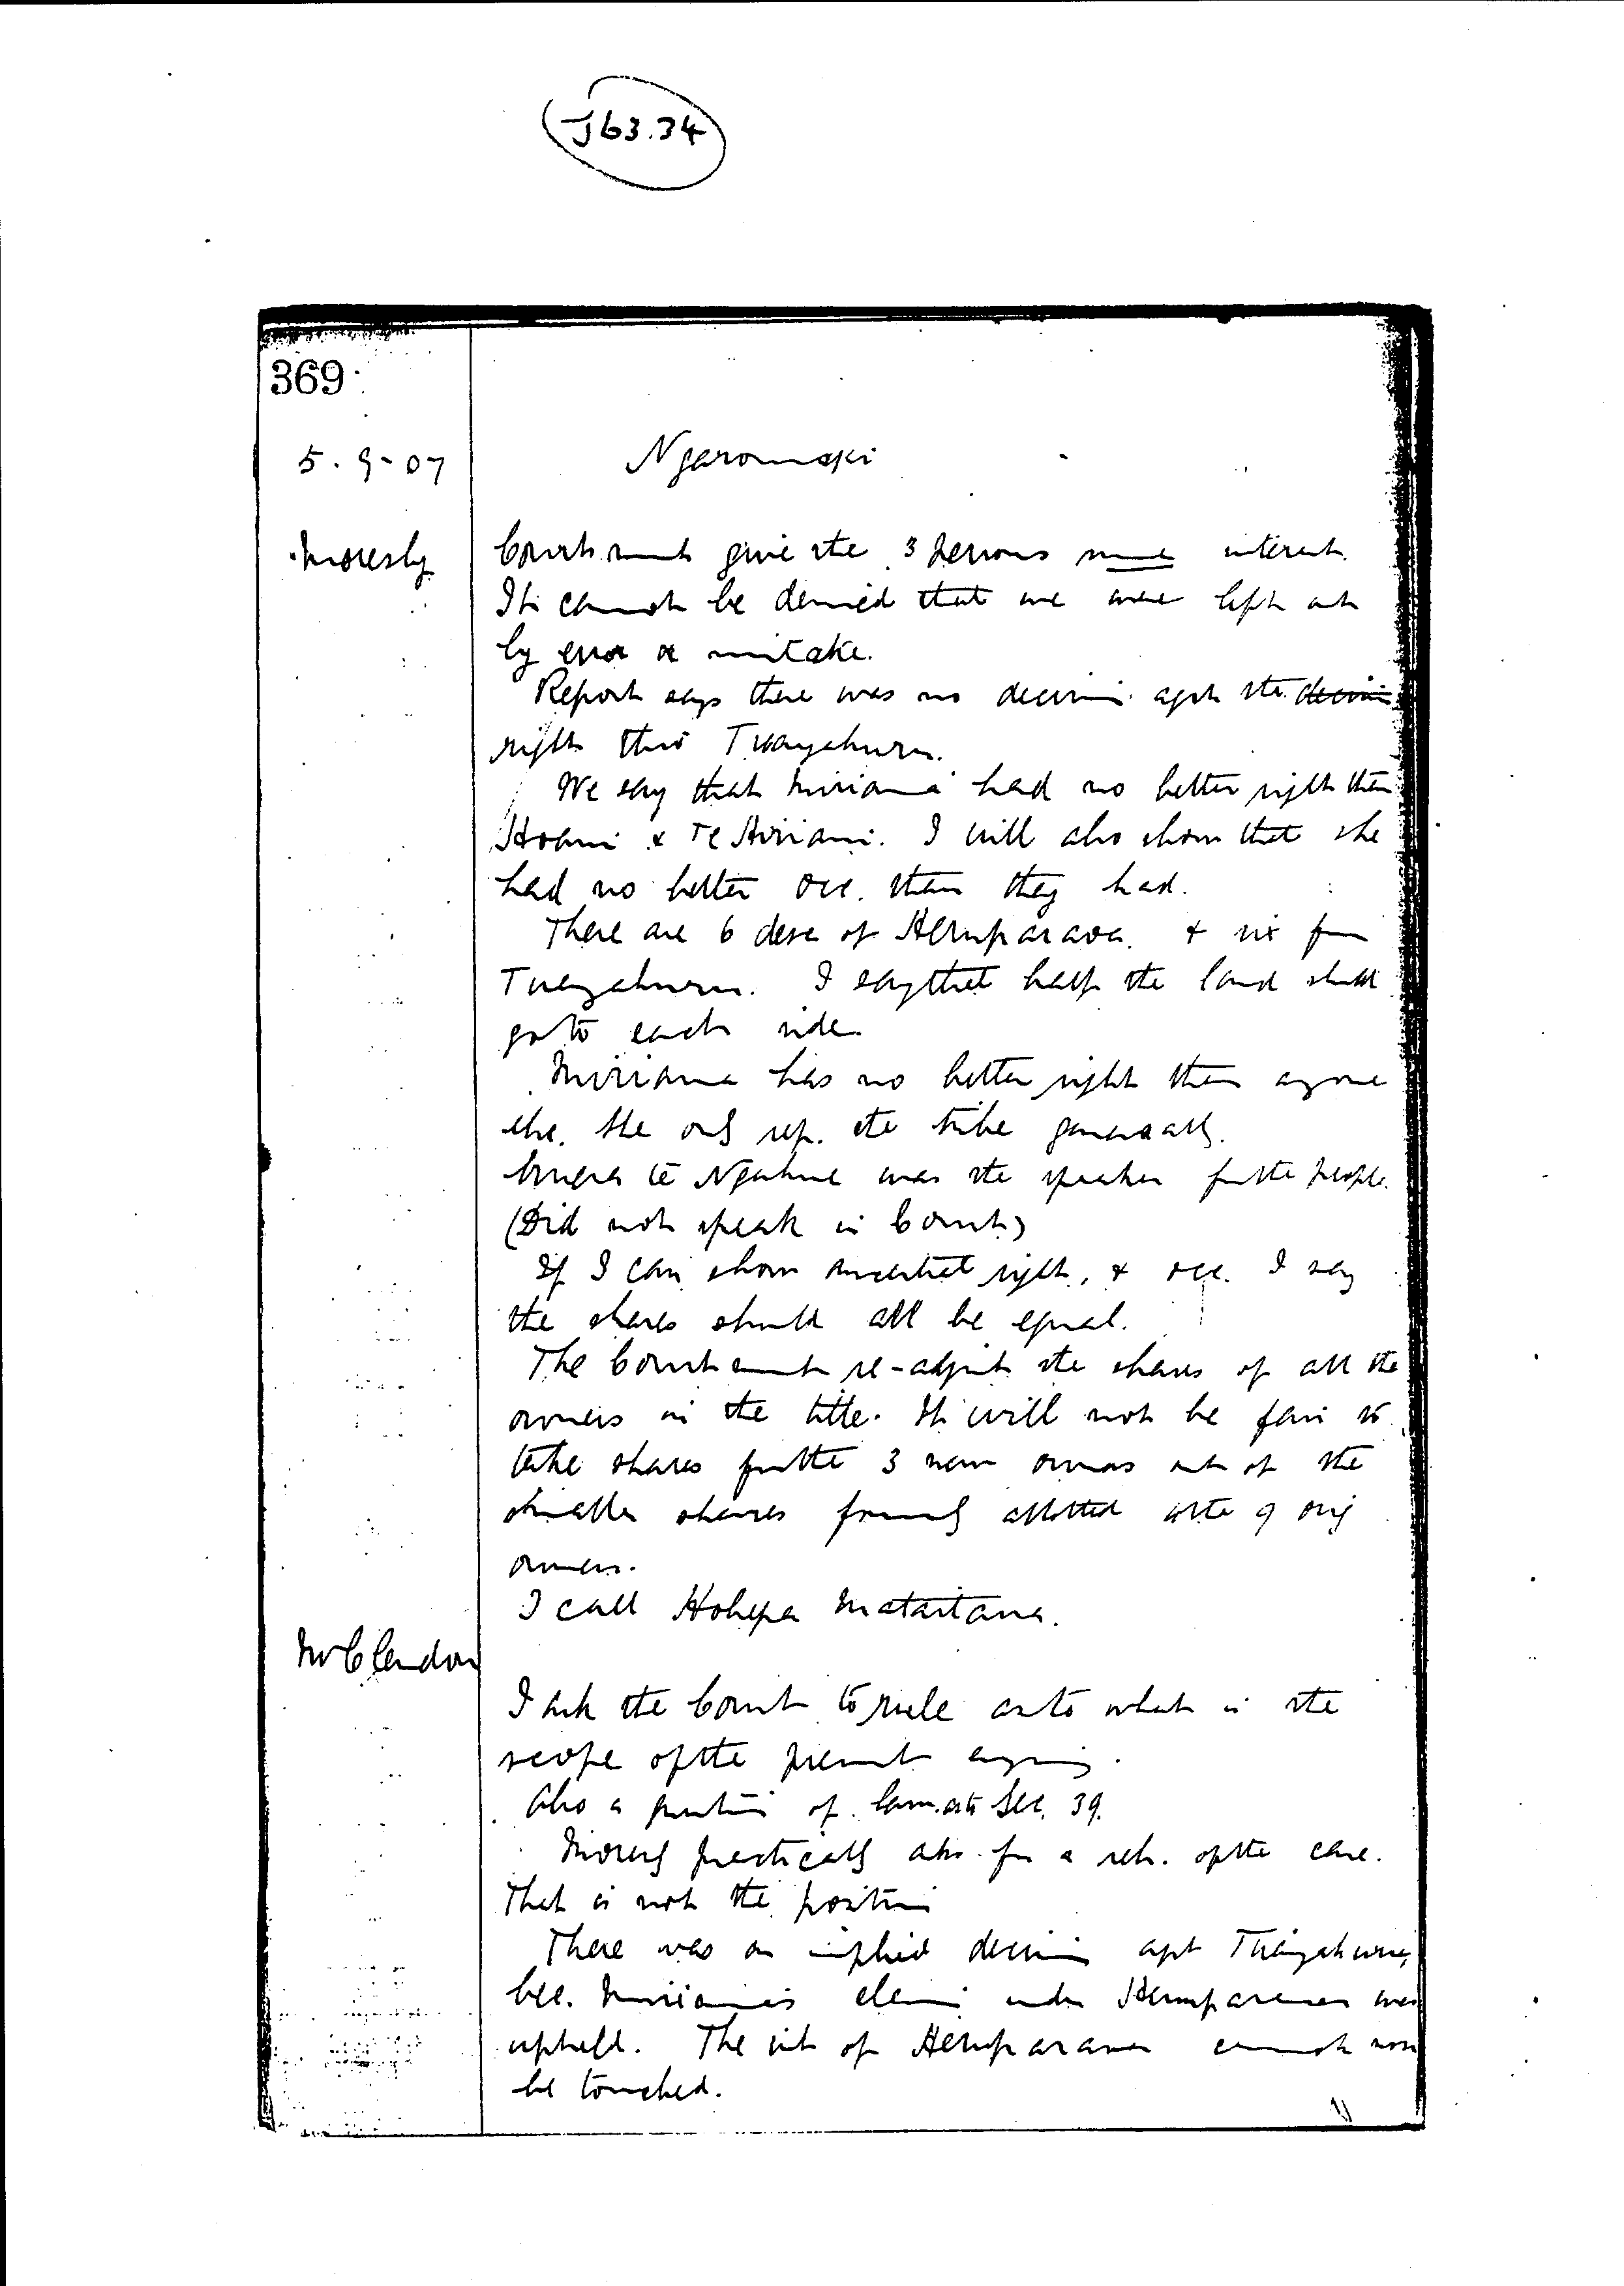 J63.34
369
5.9-07
Ngaromaki
Moresby
Court must give the 3 persons some interest.
It cannot be denied that we were left out
by error or mistake.
Report says there was no decision agst the decision
right thro' Tuangahuru.
We say that Miriama had no better right than
Hoani & Te Hiriani. I will also show that she
had no better occ. than they had.
There are 6 desc of Heruparara. & six from
Tuangahuru. I say that half the land should
go to each side.
Miriama has no better right than anyone
else. She only rep. the tribe generally.
te was the speaker for the people.
(Did not speak in Court)
If I can show ancestral right, & occ. I say
the shares should all be equal.
The Court must re-adjust the shares of all the
owners in the title. It will not be fair to
take shares for the 3 new owners out of the
smaller shares formerly allotted to the 9 orig
owners.
I call Hohepa Mataitaua.
McClendon
I ask the Court to rule as to what is the
scope of the present
Also a question of law as to Sec. 39.
Moresby practically asks for a reh. of the case.
That is not the position
There was an implied decision agst Tuangahuru,
bec. Miriama's claim under Heruparara was
upheld. The int of Heruparara cannot now
be touched.